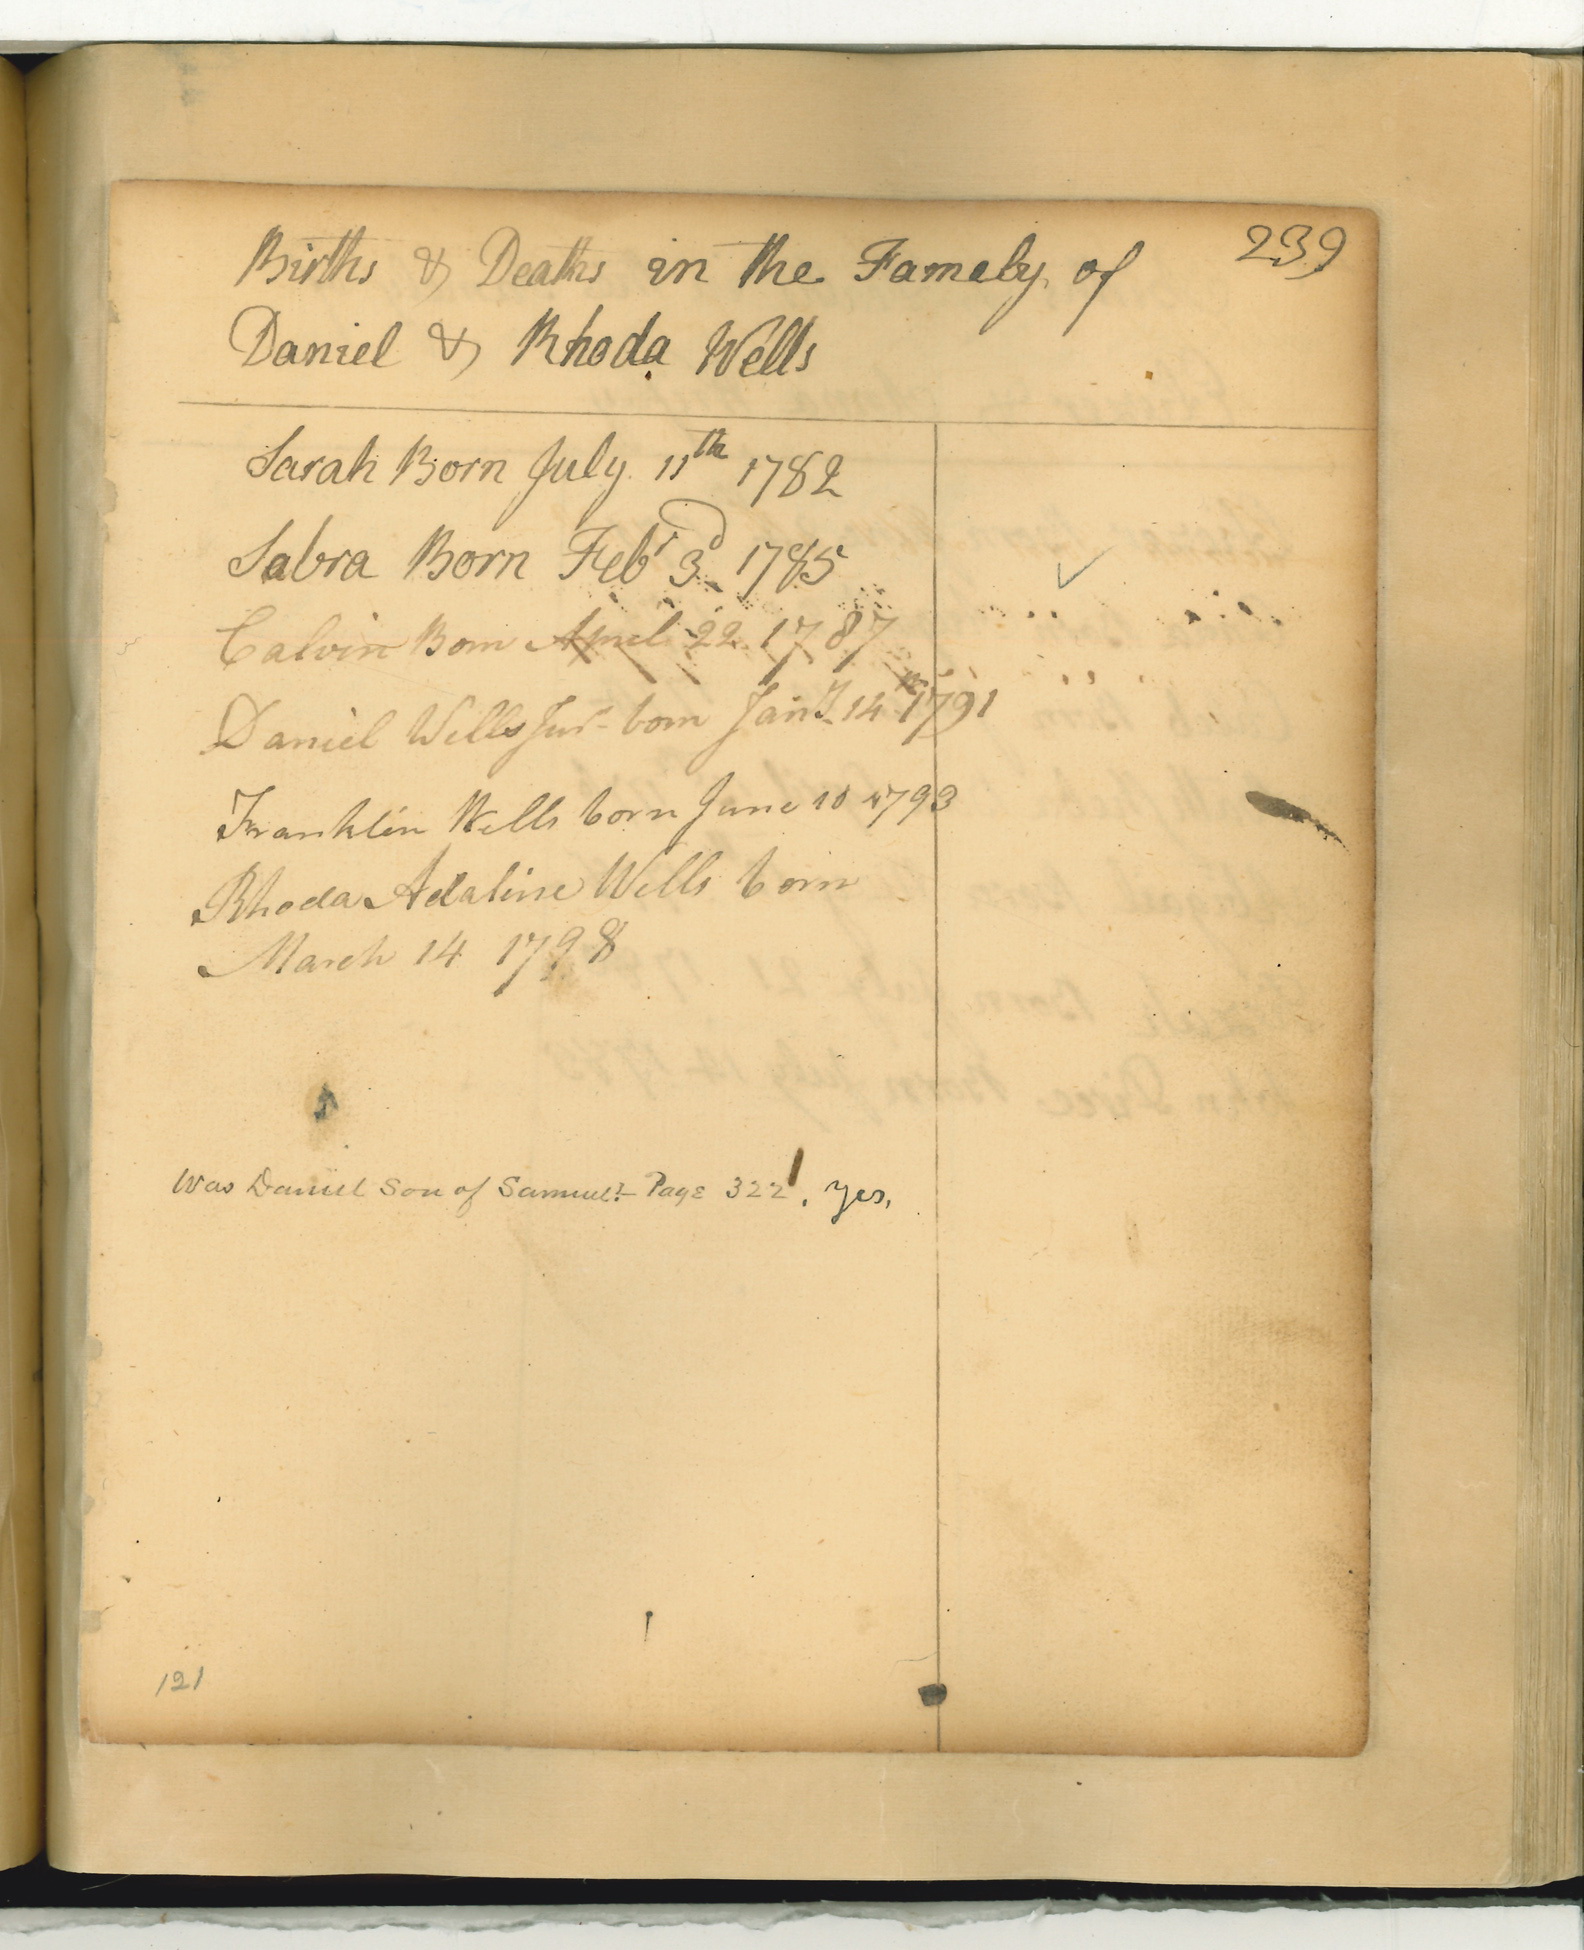 239
Births & Deaths in the Famely of
Daniel & Rhoda Wells
Sarah Born July 11th 1782
Sabra Born Febr 3d 1785
Calvin Born April 22 1787
Daniel Wells Junr born Jany 14th 1791
Franklin Wells born June 10 1793
Rhoda Adaline Wells born
March 14 1798
Was Daniel Son of Samuel? Page 322. Yes,
121